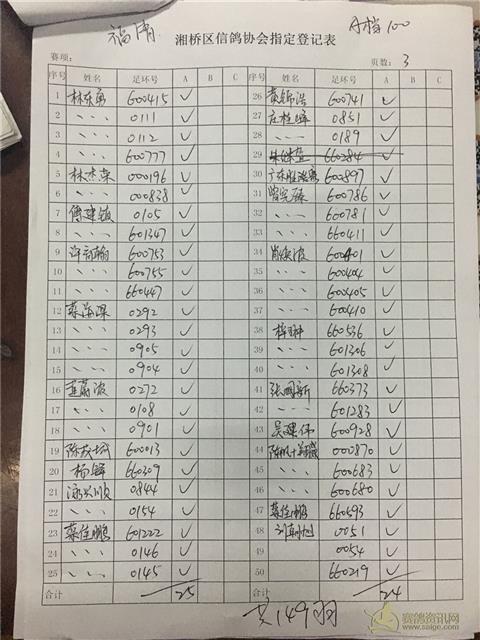 福清
A档100
湘桥区信鸽协会指定登记表
赛项:
页数: 3
序号 姓名 足环号 A B C 序号 姓名 足环号 A B C
1 600415 ✓ 26 黄锦浩 600741 ✓
2 、、、 0111 ✓ 27 庄桂峰 0851 ✓
3 、、、 0112 ✓ 28 、、、 0189 ✓
4 、、、 600777 ✓ 29 660284
5 林木荣 000196 ✓ 30 600897 ✓
6 、、、 000838 ✓ 31 600786 ✓
7 傅建雄 0105 ✓ 32 、、、 600781 ✓
8 、、、 601347 ✓ 33 、、、 660411 ✓
9 600753 ✓ 34 肖焕波 ✓
10 、、、 600755 ✓ 35 、、、 600404 ✓
11 、、、 660447 ✓ 36 、、、 600405 ✓
12 0292 ✓ 37 、、、 600410 ✓
13 、、、 0293 ✓ 38 660536 ✓
14 、、、 0905 ✓ 39 、、、 601306 ✓
15 、、、 0904 ✓ 40 、、、 601308 ✓
16 0272 ✓ 41 660373 ✓
17 、、、 0108 ✓ 42 、、、 601283 ✓
18 、、、 0901 ✓ 43 吴建伟 600928 ✓
19 陈茂城 600013 ✓ 44 000870 ✓
20 杨锋 660309 ✓ 45 、、、 600683 ✓
21 0844 ✓ 46 、、、 600680 ✓
22 、、、 0154 ✓ 47 蔡佳鹏 660593 ✓
23 蔡佳鹏 601222 ✓ 48 0051 ✓
24 、、、 0146 ✓ 49 0054 ✓
25 、、、 0145 ✓ 50 660219 ✓
合计 25 合计 24
共149羽
赛鸽资讯网
www.saige.com